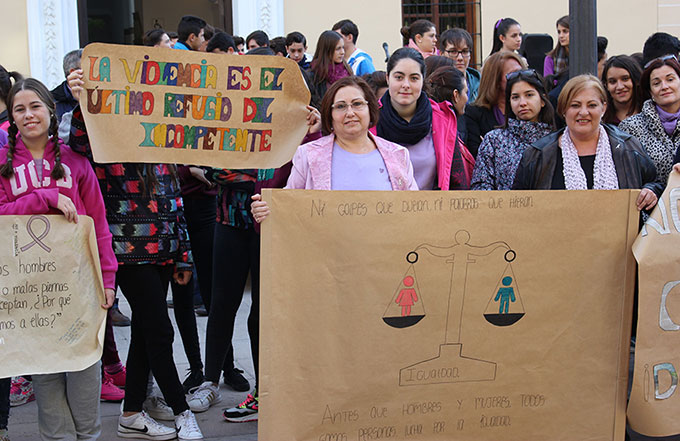 LA VIOLENCIA ES EL
ÚLTIMO REFUGIO DEL
INCOMPETENTE
UCS
os hombres
o malas piernas
ceptan, ¿Por qué
mos a ellas?"
Ni GOLPES QUE DUELAN, Ni PALABRAS QUE HIERAN.
IGUALDAD
ANTES QUE HOMBRES Y MUJERES TODOS
SOMOS PERSONAS LUCHA POR LA IGUALDAD.
N
C
iD